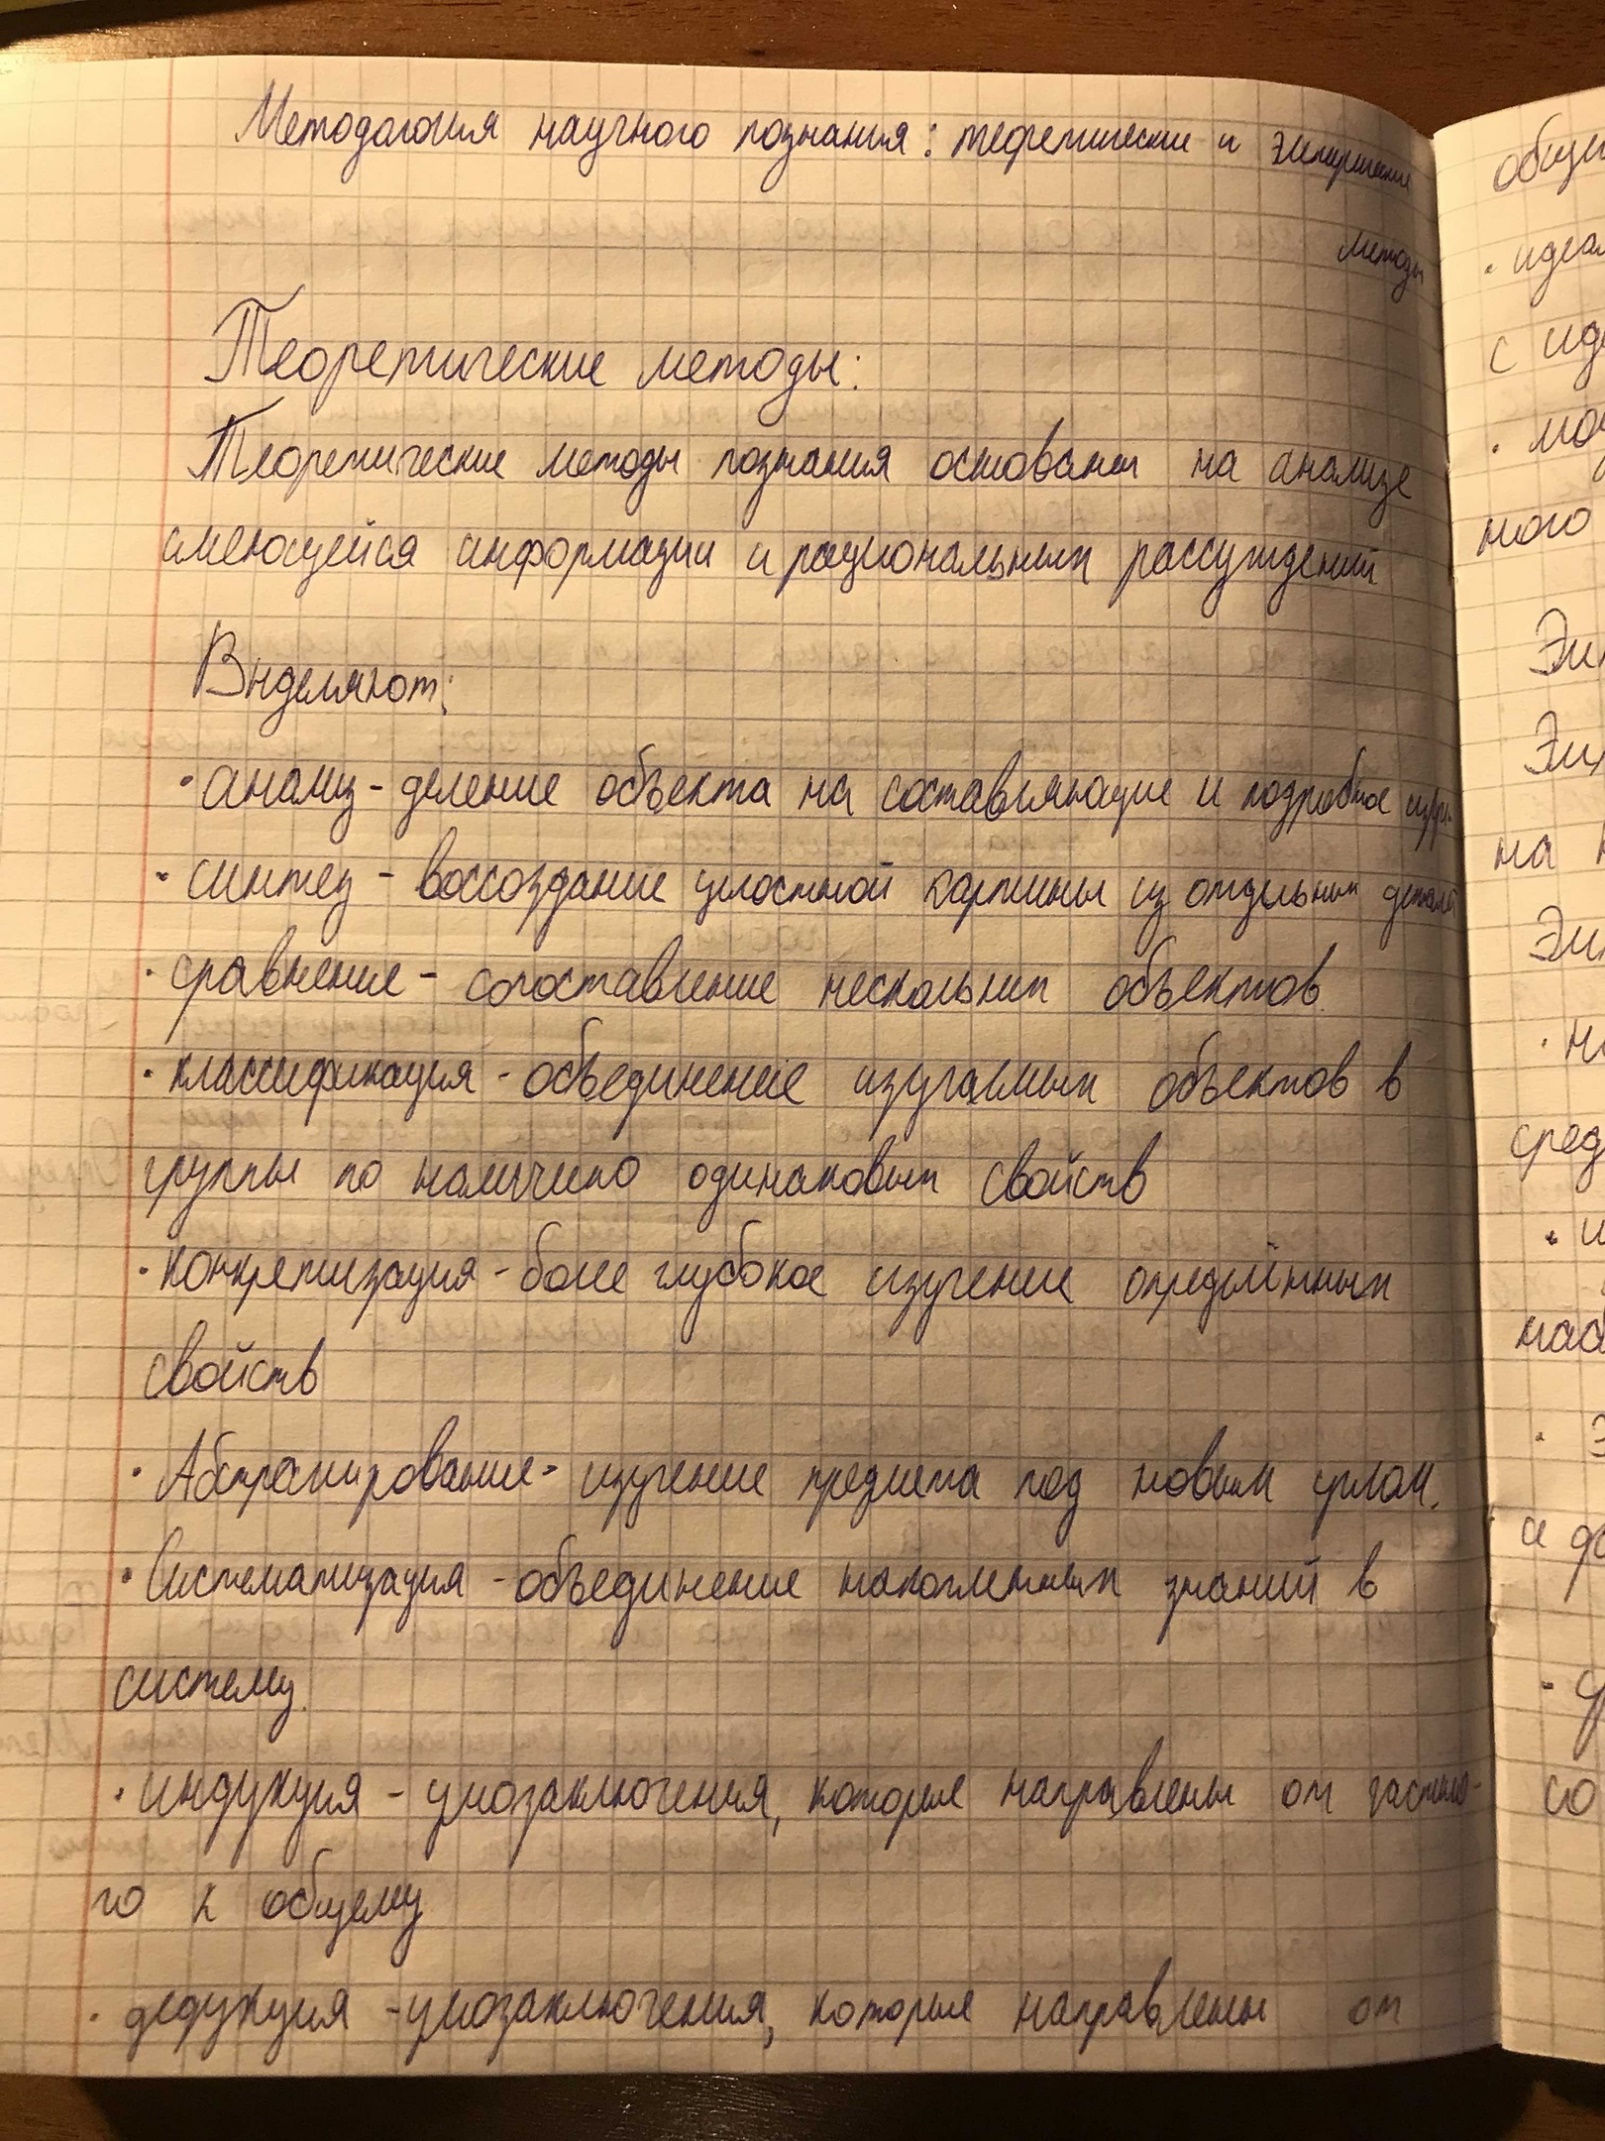 Методология научного познания: теоретические и эмпирические
методы
Теоретические методы:
Теоретические методы познания основаны на анализе
имеющейся информации и рациональных рассуждений
Выделяют:
· анализ - деление объекта на составляющие и подробное
· синтез - воссоздание целостной картины из отдельных деталей
· сравнение - сопоставление нескольких объектов.
· классификация - объединение изучаемых объектов в
группы по наличию одинаковых свойств
· конкретизация - более глубокое изучение определённых
свойств
· Абстрагирование - изучение предмета под новым углом.
· Систематизация - объединение накопленных знаний в
систему.
· индукция - умозаключения, которые направлены от частно-
го к общему
· дедукция - умозаключения, которые направлены от
общ
· идеал
с иде
· мод
ного
Эм
Эм
на
Эм
· н
сред
· и
наб
· э
и до
со